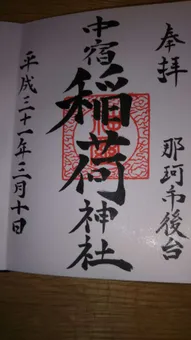 奉拝
那珂市後台
中宿
稲荷神社
平成三十一年三月十日